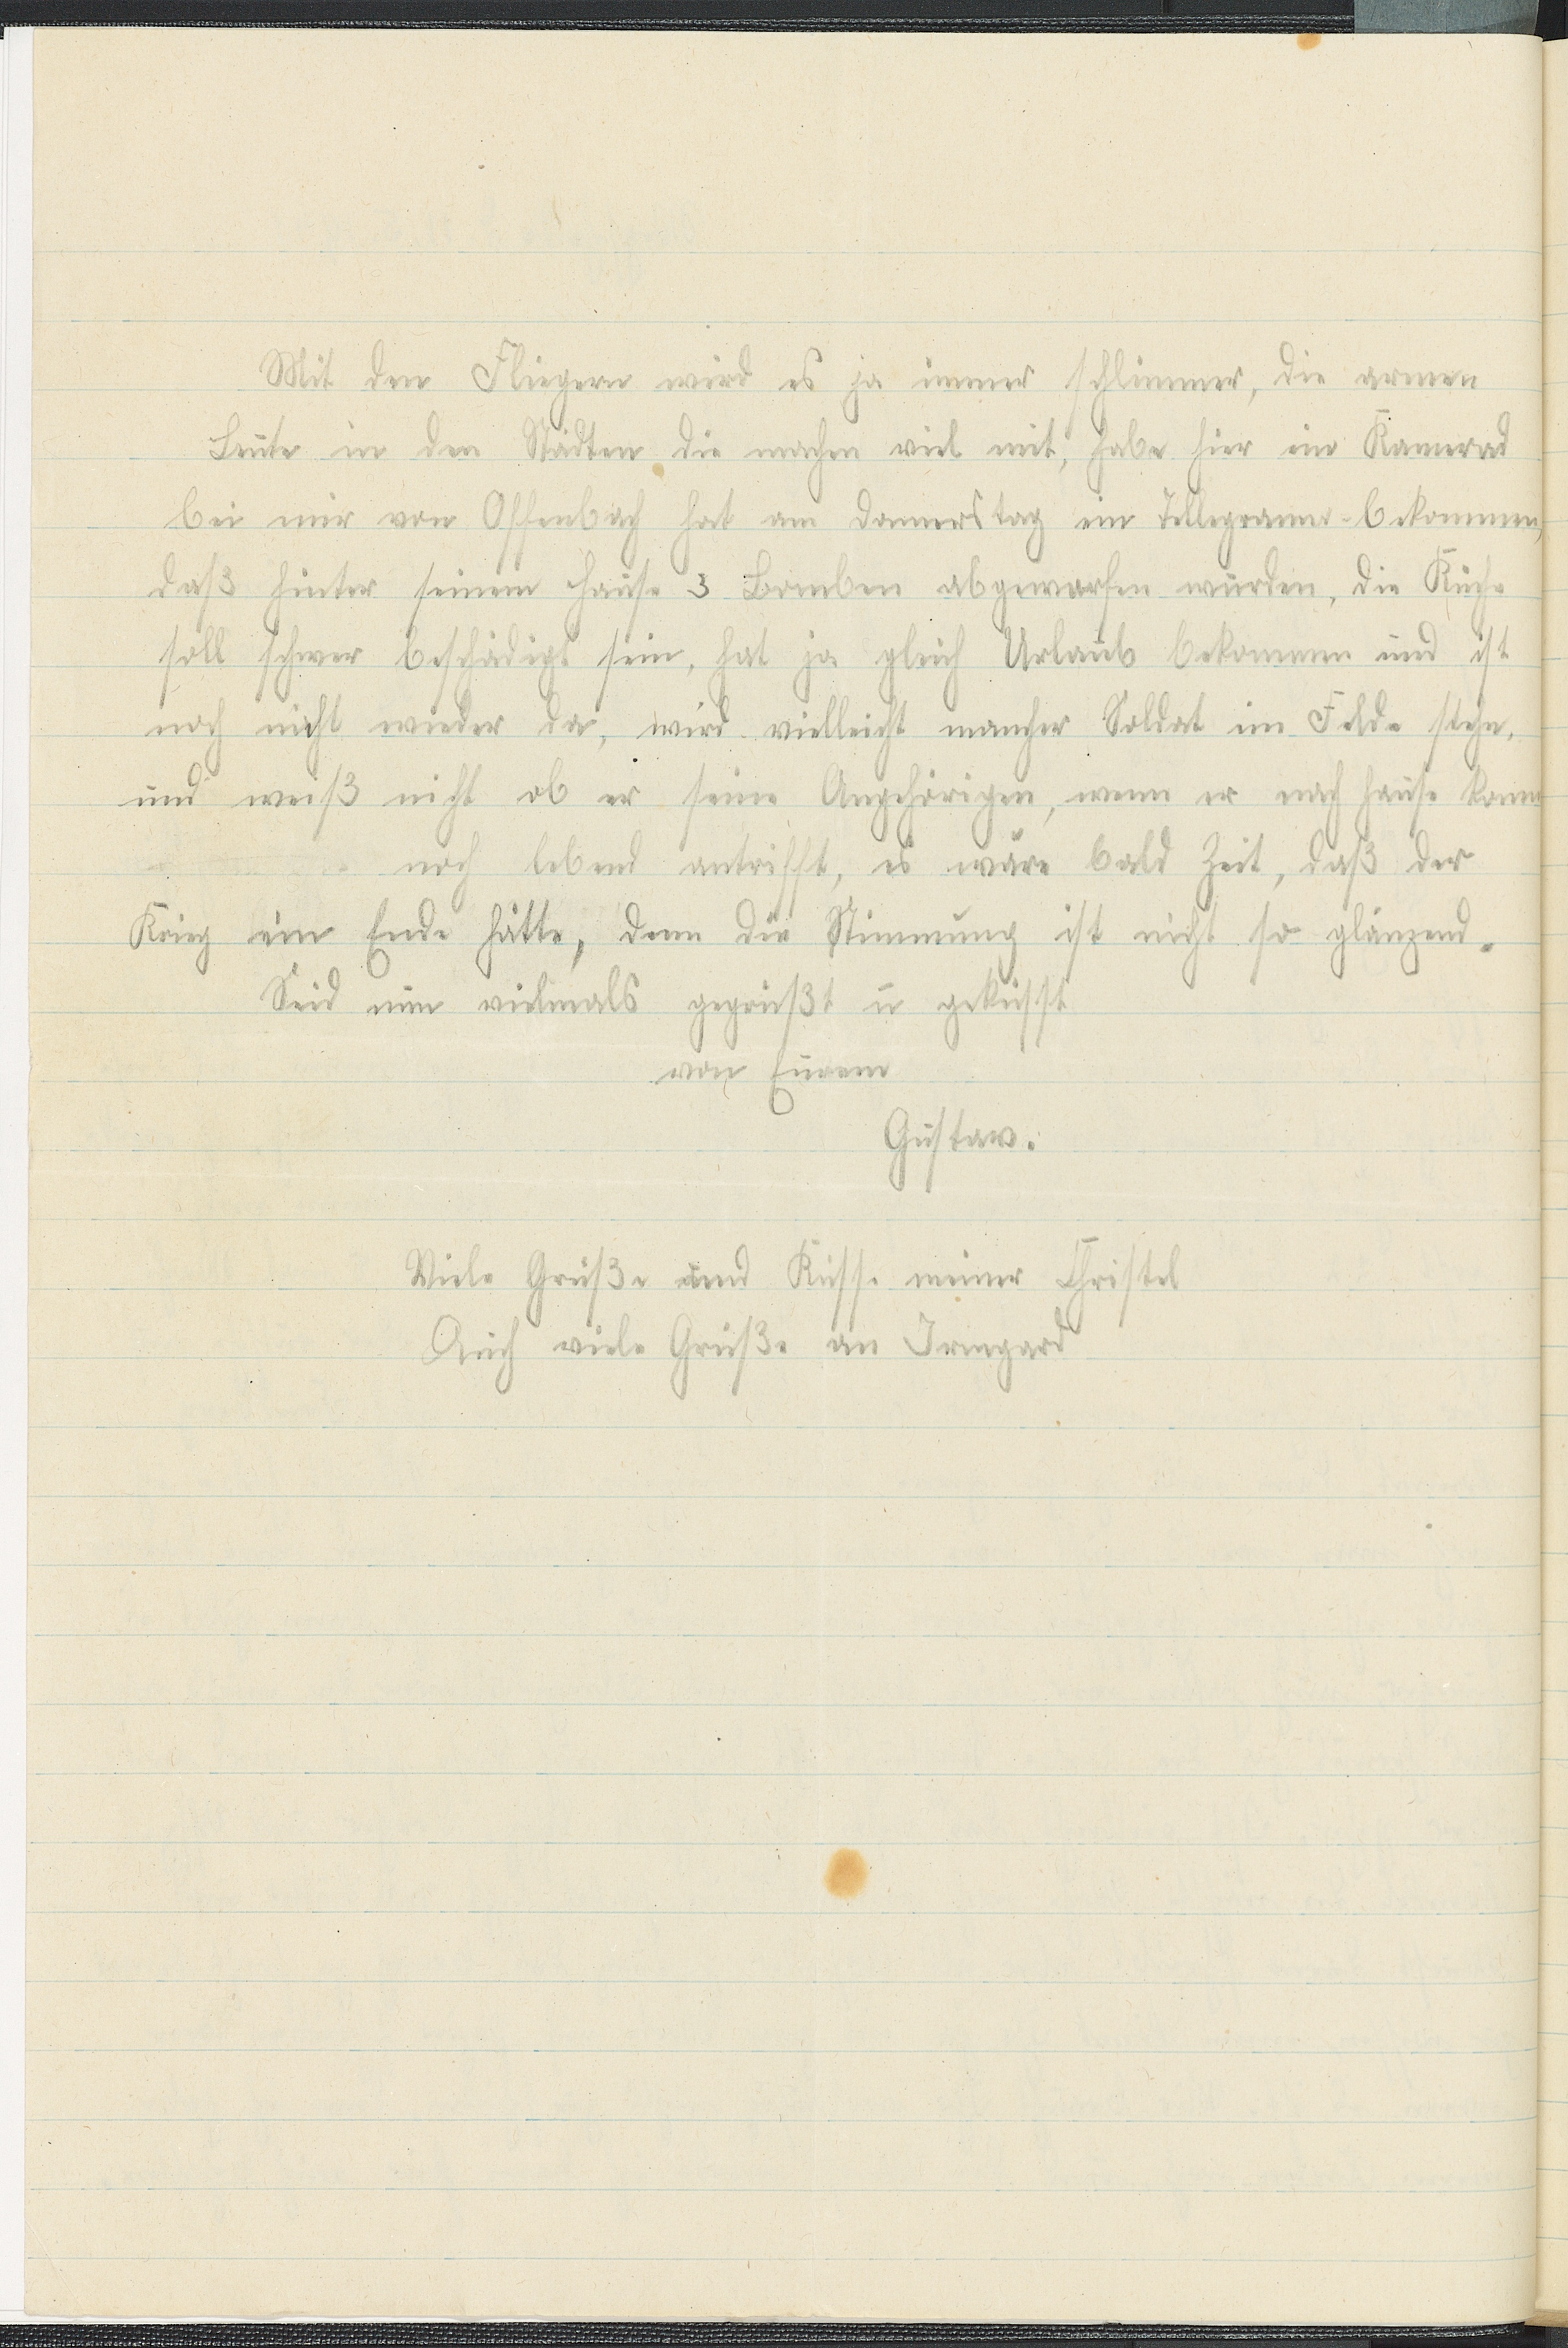 Mit den Fliegern wird es ja immer schlimmer, die armen
Leute in den Städten die machen viel mit, habe hier ein Kamerad
bei mir von Offenbach hat am Donnerstag ein Tellegramm bekommen,
daß hinter seinem Hause 3 Bomben abgeworfen wurden, die Küche
soll schwer beschädigt sein, hat ja gleich Urlaub bekommen und ist
noch nicht wieder da, wird vielleicht mancher Soldat im Felde stehn,
und weiß nicht ob er seine Angehörigen, wenn er nach Hause komm
noch lebend antrifft, es wäre bald Zeit, daß der
Krieg ein Ende hätte, denn die Stimmung ist nicht so glänzend.
Seid nun vielmals gegrüßt u geküsst
von Eurem
Gustav.
Viele Grüße und Küsse meiner Christel
Auch viele Grüße an Irmgard